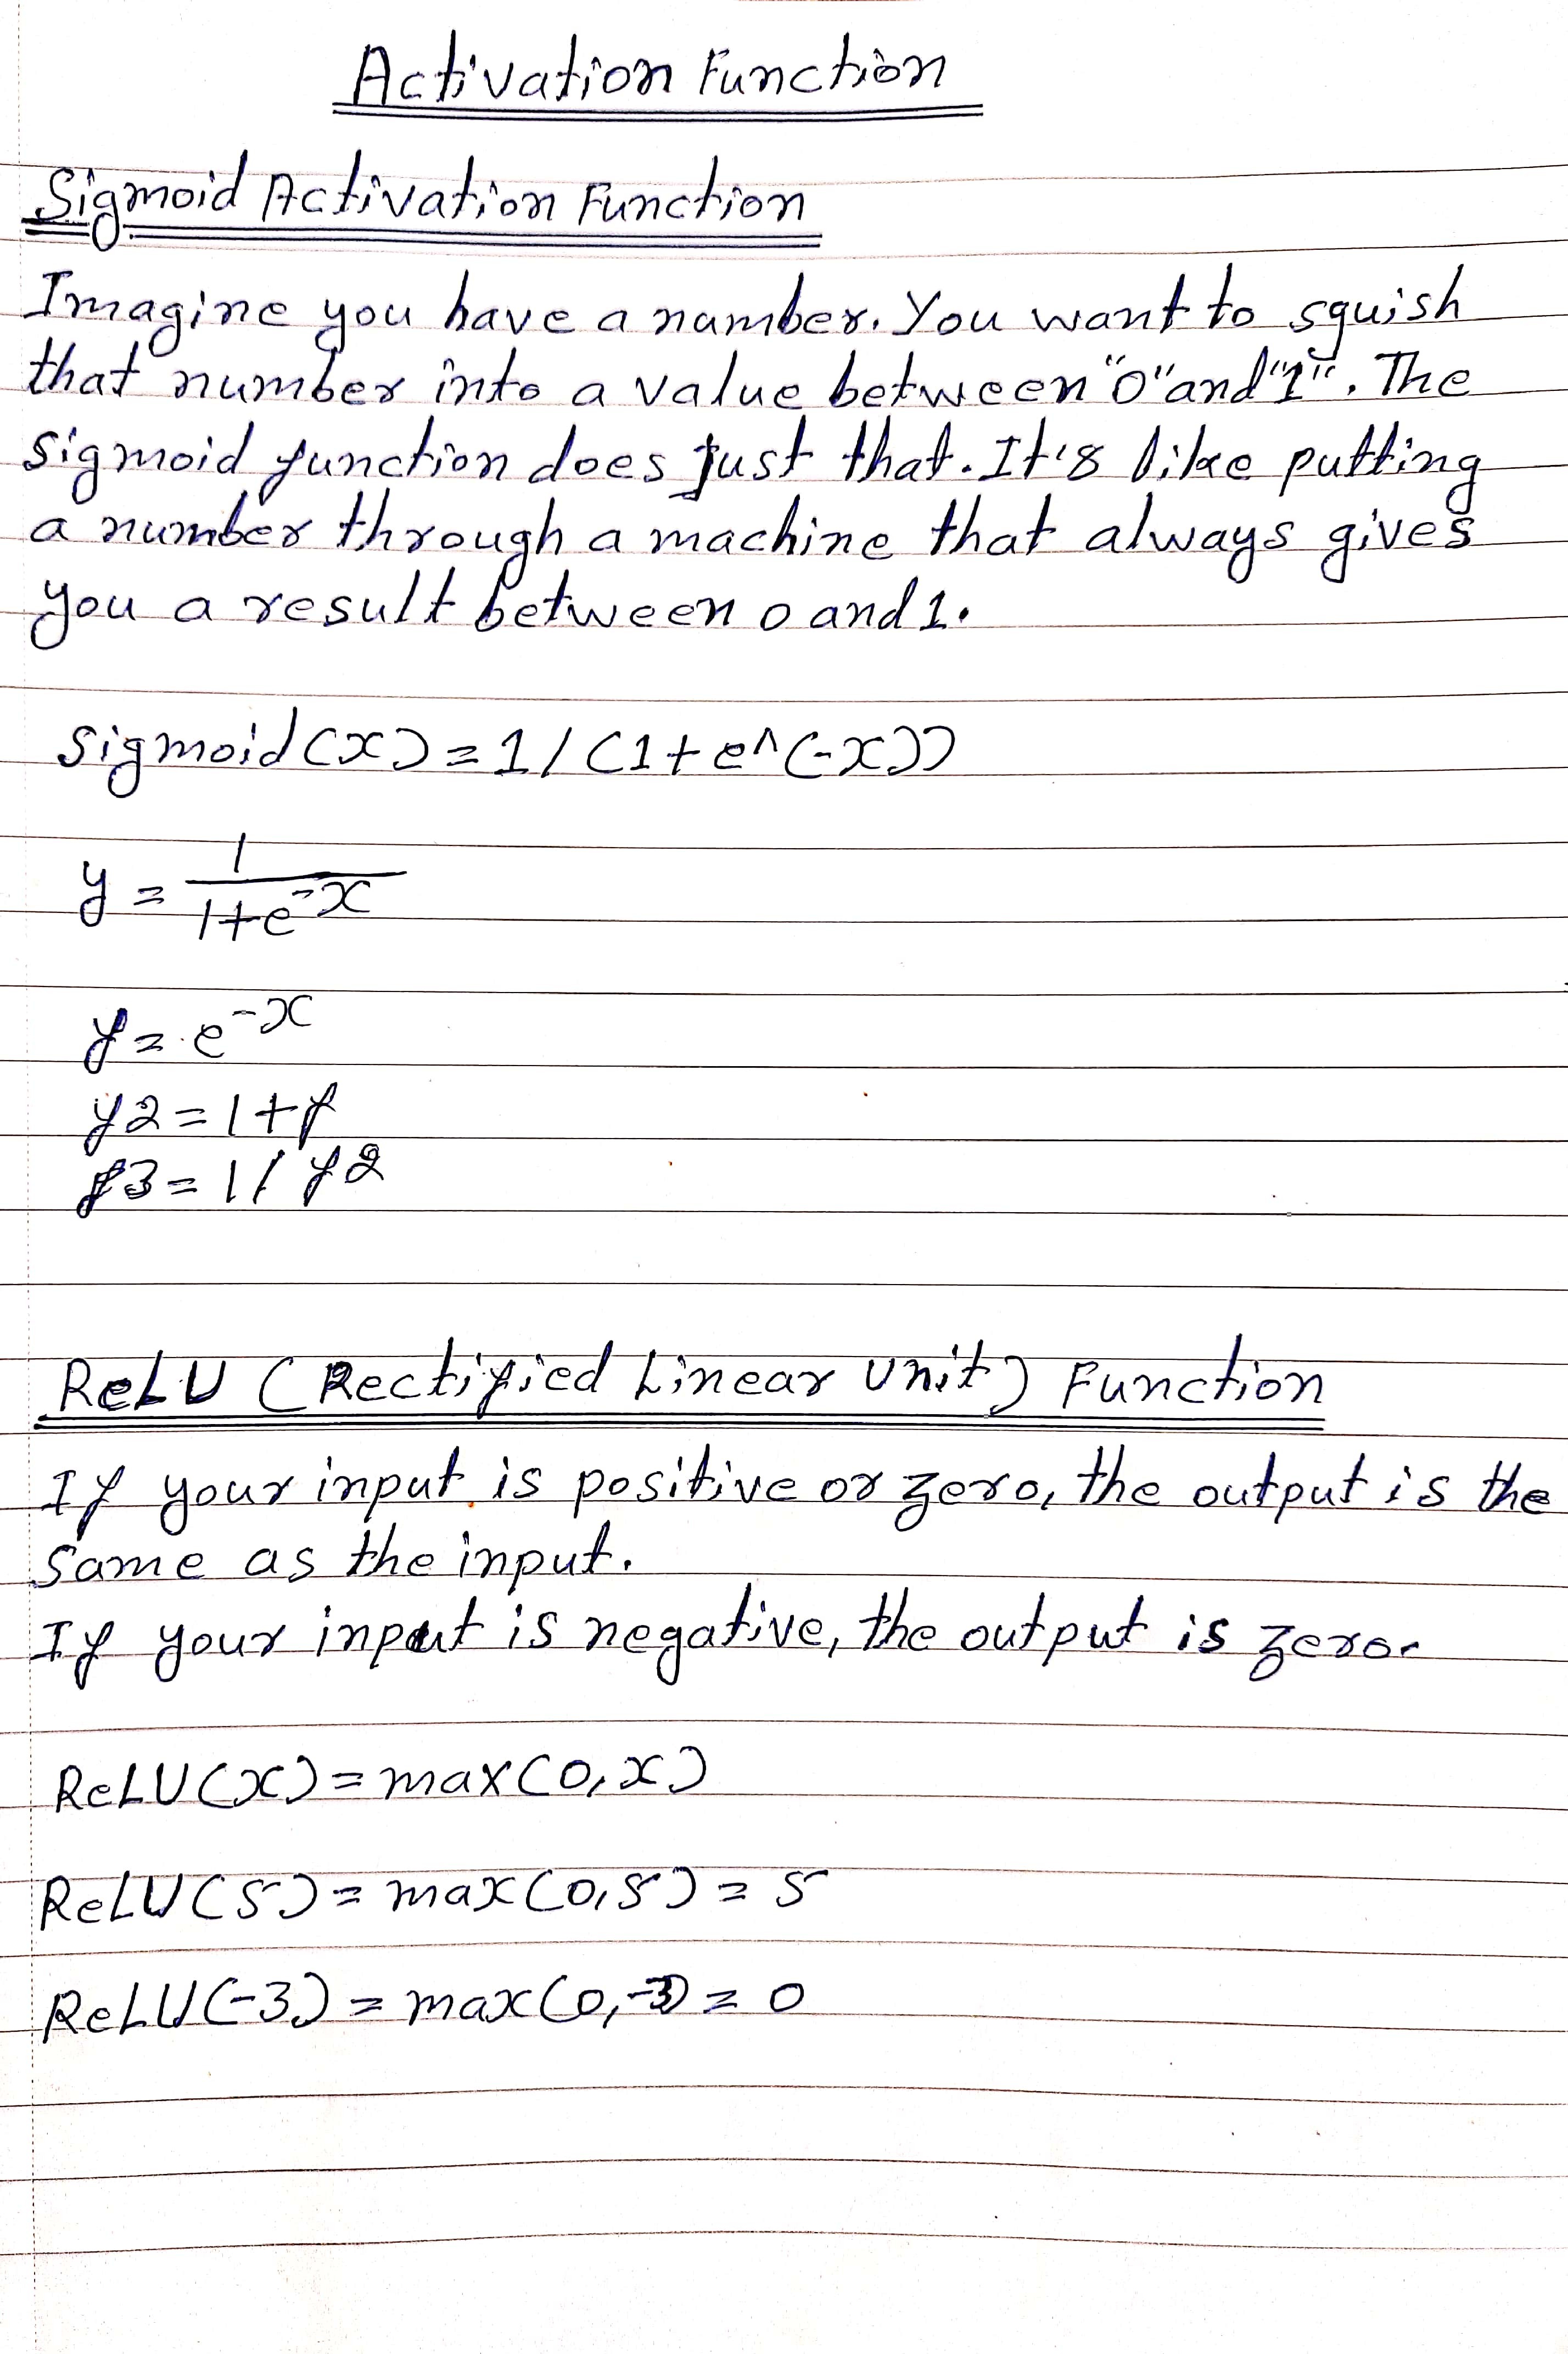 Activation Function
Sigmoid Activation Function
Imagine you have a number. You want to squish
that number into a value between "0" and "1". The
sigmoid function does just that. It's like putting
a number through a machine that always gives
you a result between 0 and 1.
sigmoid(x) = 1/(1+e^(-x))
y = 1/1+e⁻ˣ
y = e⁻ˣ
y2 = 1+y
y3 = 1/y2
ReLU (Rectified Linear Unit) Function
If your input is positive or zero, the output is the
same as the input.
If your input is negative, the output is zero.
ReLU(x) = max(0,x)
ReLU(5) = max(0,5) = 5
ReLU(-3) = max(0,-3) = 0